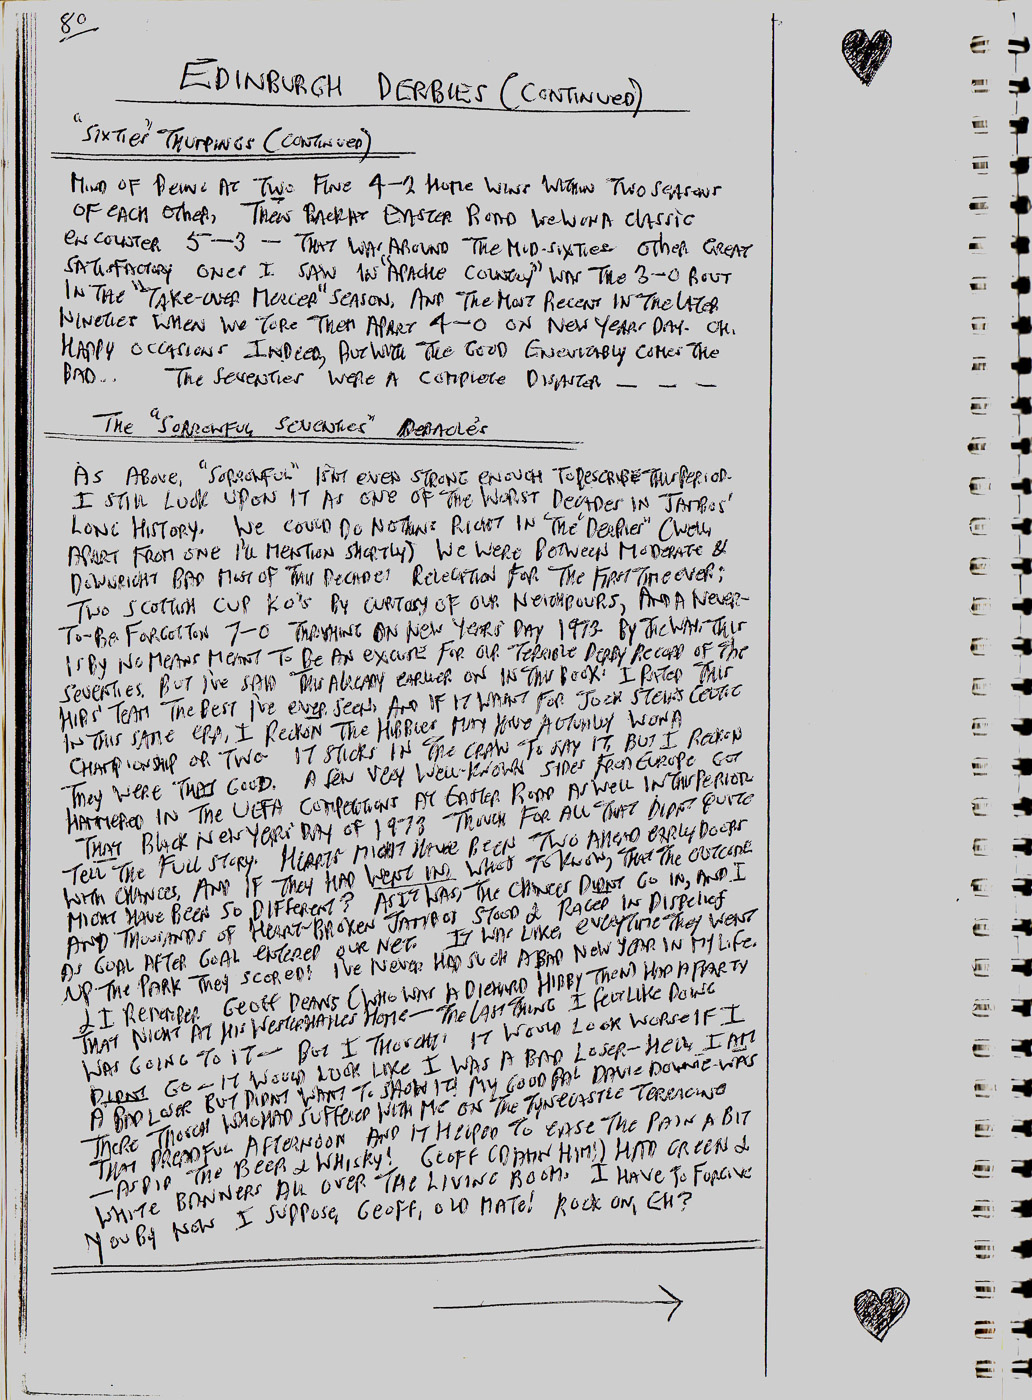 80
EDINBURGH DERBIES (CONTINUED)
"SIXTIES" THUMPINGS (CONTINUED)
MIND OF BEING AT TWO FINE 4-2 HOME WINS WITHIN TWO SEASONS
OF EACH OTHER, THEN BACK AT EASTER ROAD WE WON A CLASSIC
ENCOUNTER 5-3 - THAT WAS AROUND THE MID-SIXTIES OTHER GREAT
SATISFACTORY ONES I SAW IN "APACHE COUNTRY" WAS THE 3-0 ROUT
IN THE "TAKE-OVER MERCER" SEASON, AND THE MOST RECENT IN THE LATER
NINETIES WHEN WE TORE THEM APART 4-0 ON NEW YEARS DAY. OH,
HAPPY OCCASIONS INDEED, BUT WITH THE GOOD ENEVITABLY COMES THE
BAD... THE SEVENTIES WERE A COMPLETE DISASTER - - -
THE "SORROWFUL SEVENTIES" DEBACLE'S
AS ABOVE, "SORROWFUL" ISN'T EVEN STRONG ENOUGH TO DESCRIBE THIS PERIOD.
I STILL LOOK UPON IT AS ONE OF THE WORST DECADES IN JAMBOS'
LONG HISTORY. WE COULD DO NOTHING RIGHT IN "THE DERBIES" (WELL
APART FROM ONE I'LL MENTION SHORTLY) WE WERE BETWEEN MODERATE &
DOWNRIGHT BAD MOST OF THIS DECADE! RELEGATION FOR THE FIRST TIME EVER;
TWO SCOTTISH CUP KO'S BY CURTOSY OF OUR NEIGHBOURS, AND A NEVER-
TO-BE FORGOTTON 7-0 THRASHING ON NEW YEARS' DAY 1973. BY THE WAY THIS
IS BY NO MEANS MEANT TO BE AN EXCUSE FOR OUR TERRIBLE DERBY RECORD OF THE
SEVENTIES, BUT I'VE SAID THIS ALREADY EARLIER ON IN THIS BOOK. I RATED THIS
HIBS' TEAM THE BEST I'VE EVER SEEN, AND IF IT WASNT FOR JOCK STEIN'S CELTIC
IN THIS SAME ERA, I RECKON THE HIBBIES MAY HAVE ACTUALLY WON A
CHAMPIONSHIP OR TWO. IT STICKS IN THE CRAW TO SAY IT, BUT I RECKON
THEY WERE THAT GOOD. A FEW VERY WELL-KNOWN SIDES FROM EUROPE GOT
HAMMERED IN THE UEFA COMPETITIONS AT EASTER ROAD AS WELL IN THIS PERIOD.
THAT BLACK NEW YEARS' DAY OF 1973 THOUGH FOR ALL THAT DIDNT QUITE
TELL THE FULL STORY. HEARTS MIGHT HAVE BEEN TWO AHEAD EARLY DOORS
WITH CHANCES, AND IF THEY HAD WENT IN, WHO'S TO KNOW, THAT THE OUTCOME
MIGHT HAVE BEEN SO DIFFERENT? AS IT WAS, THE CHANCES DIDNT GO IN, AND I
AND THOUSANDS OF HEART-BROKEN JAMBOS STOOD & RAGED IN DISBELIEF
AS GOAL AFTER GOAL ENTERED OUR NET. IT WAS LIKE, EVERYTIME THEY WENT
UP THE PARK THEY SCORED! I'VE NEVER HAD SUCH A BAD NEW YEAR IN MY LIFE.
& I REMEMBER GEOFF DEANS (WHO WAS A DIEHARD HIBBY THEN) HAD A PARTY
THAT NIGHT AT HIS WESTERHAILES HOME - THE LAST THING I FELT LIKE DOING
WAS GOING TO IT - BUT I THOUGHT IT WOULD LOOK WORSE IF I
DIDNT GO - IT WOULD LOOK LIKE I WAS A BAD LOSER - HELL, I AM
A BAD LOSER BUT DIDNT WANT TO SHOW IT! MY GOOD PAL DAVIE DOWNIE WAS
THERE THOUGH WHO HAD SUFFERED WITH ME ON THE TYNECASTLE TERRACING
THAT DREADFUL AFTERNOON AND IT HELPED TO EASE THE PAIN A BIT
- AS DID THE BEER & WHISKY! GEOFF (DAMN HIM!) HAD GREEN &
WHITE BANNERS ALL OVER THE LIVING ROOM. I HAVE TO FORGIVE
YOU BY NOW I SUPPOSE, GEOFF, OLD MATE! ROCK ON, EH?